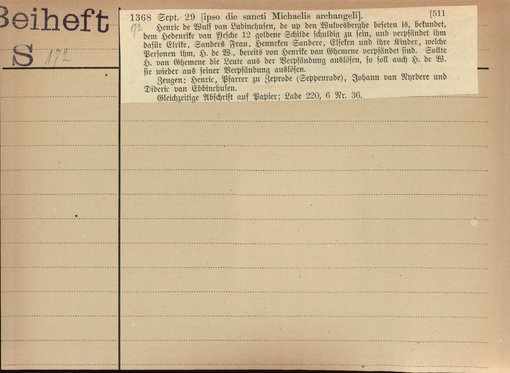 Beiheft
S 172
1368 Sept. 29 [ipso die sancti Michaelis archangeli]. [511
172 Henric de Wulf van Ludinchusen, de up den Wulvesberghe beseten is, bekundet,
dem Hedenrike van Hesche 12 goldene Schilde schuldig zu sein, und verpfändet ihm
dafür Elrike, Sanders Frau, Henneken Sandere, Elseken und ihre Kinder, welche
Personen ihm, H. de W., bereits von Henrike van Ghemene verpfändet sind. Sollte
H. van Ghemene die Leute aus der Verpfändung auslösen, so soll auch H. de W.
sie wieder aus seiner Verpfändung auslösen.
Zeugen: Henric, Pfarrer zu Zeprode (Seppenrade), Johann van Nyrdere und
Dideric van Ebbinchusen.
Gleichzeitige Abschrift auf Papier; Lade 220, 6 Nr. 36.